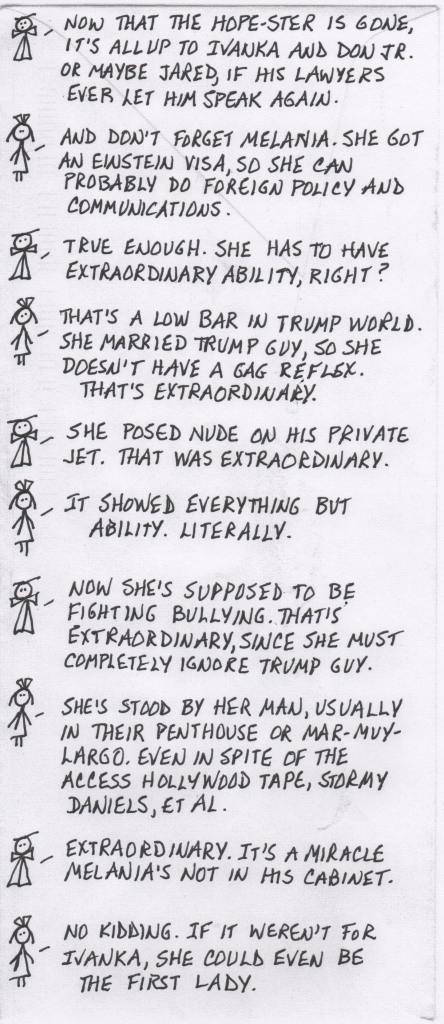 NOW THAT THE HOPE-STER IS GONE,
IT'S ALL UP TO IVANKA AND DON JR.
OR MAYBE JARED, IF HIS LAWYERS
EVER LET HIM SPEAK AGAIN.
AND DON'T FORGET MELANIA. SHE GOT
AN EINSTEIN VISA, SO SHE CAN
PROBABLY DO FOREIGN POLICY AND
COMMUNICATIONS.
TRUE ENOUGH. SHE HAS TO HAVE
EXTRAORDINARY ABILITY, RIGHT?
THAT'S A LOW BAR IN TRUMP WORLD.
SHE MARRIED TRUMP GUY, SO SHE
DOESN'T HAVE A GAG REFLEX.
THAT'S EXTRAORDINARY.
SHE POSED NUDE ON HIS PRIVATE
JET. THAT WAS EXTRAORDINARY.
IT SHOWED EVERYTHING BUT
ABILITY. LITERALLY.
NOW SHE'S SUPPOSED TO BE
FIGHTING BULLYING. THAT'S
EXTRAORDINARY, SINCE SHE MUST
COMPLETELY IGNORE TRUMP GUY.
SHE'S STOOD BY HER MAN, USUALLY
IN THEIR PENTHOUSE OR MAR-MUY-
LARGO. EVEN IN SPITE OF THE
ACCESS HOLLYWOOD TAPE, STORMY
DANIELS, ET AL.
EXTRAORDINARY. IT'S A MIRACLE
MELANIA'S NOT IN HIS CABINET.
NO KIDDING. IF IT WEREN'T FOR
IVANKA, SHE COULD EVEN BE
THE FIRST LADY.